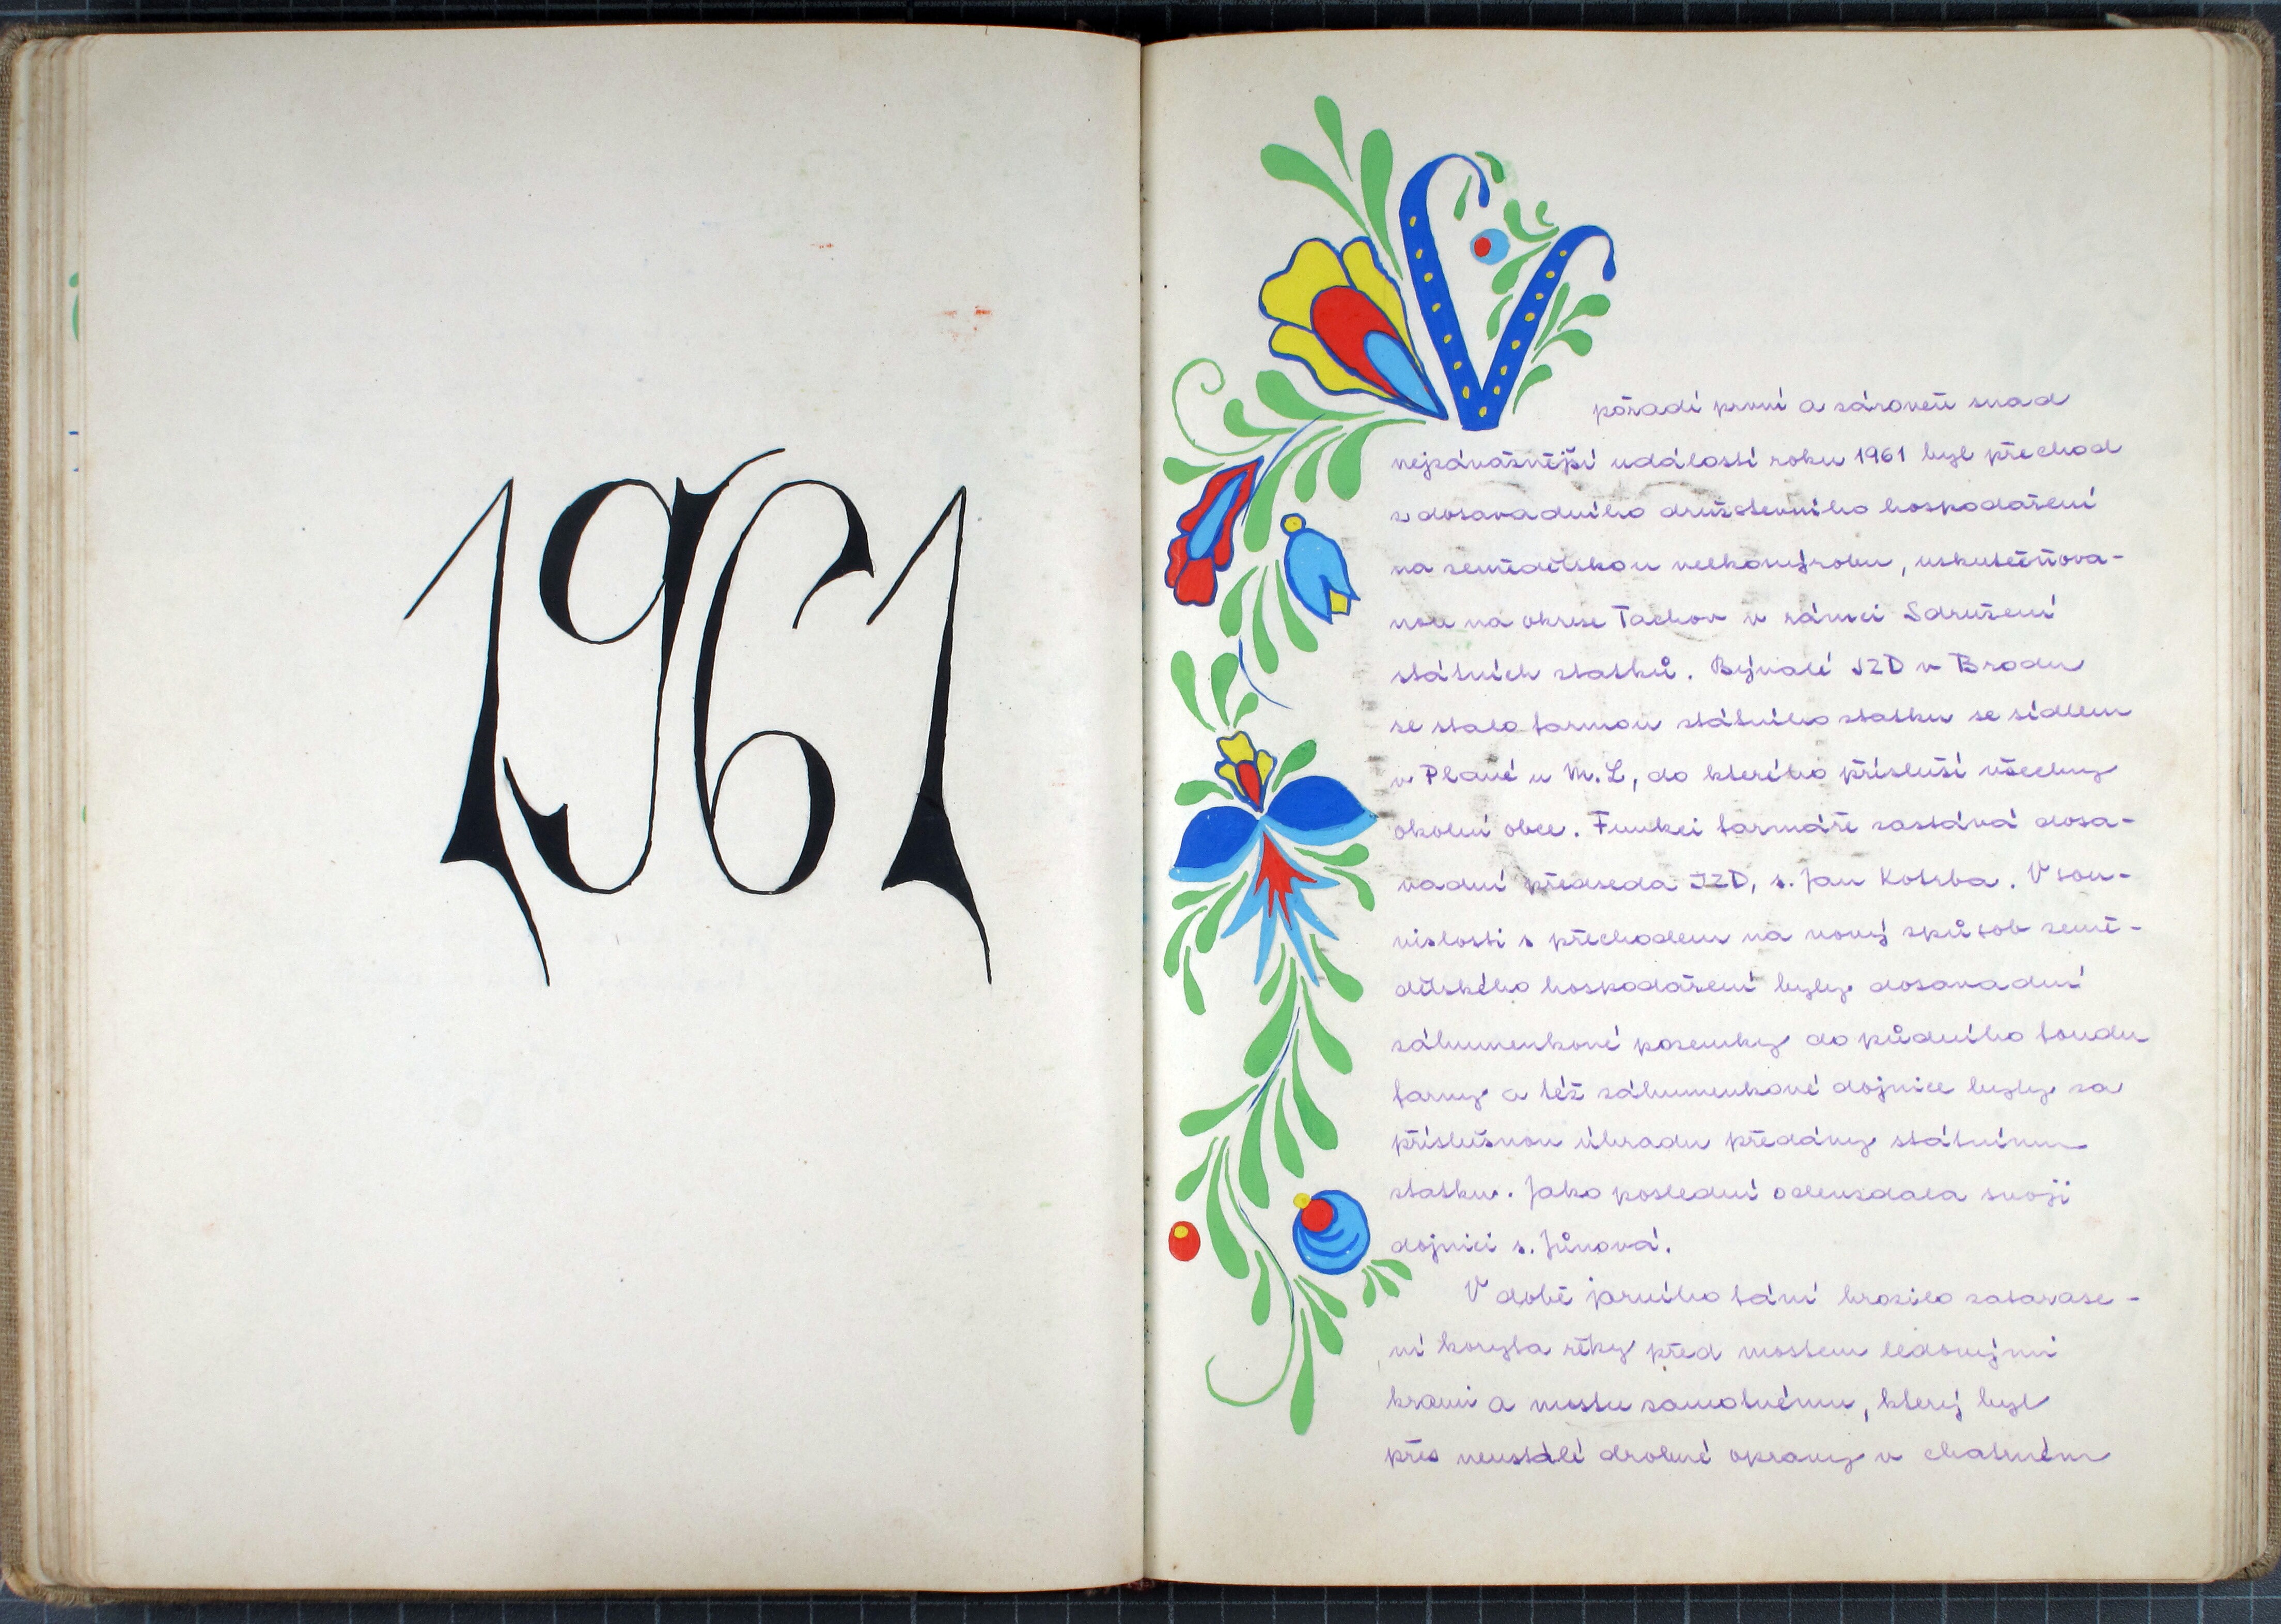 1961
V
pořadí první a zároveň snad
nejzávažnější událostí roku 1961 byl přechod
z dosavadního družstevního hospodaření
na zemědělskou velkovýrobu, uskutečňova-
nou na okrese Tachov v rámci Sdružení
státních statků. Bývalé JZD v Brodu
se stalo farmou státního statku se sídlem
v Plané u M. L, do kterého přísluší všechny
okolní obce. Funkci farmáře zastává dosa-
vadní předseda JZD, s. Jan Kotrba. V sou-
vislosti s přechodem na nový způsob země-
dělského hospodaření byly dosavadní
záhumenkové pozemky do půdního fondu
farmy a též záhumenkové dojnice byly za
příslušnou úhradu předány státnímu
statku. Jako poslední odevzdala svoji
dojnici s. Jůnová.
V době jarního tání hrozilo zatarase-
ní koryta řeky před mostem ledovými
krami a mostu samotnému, který byl
přes neustálé drobné opravy v chatrném